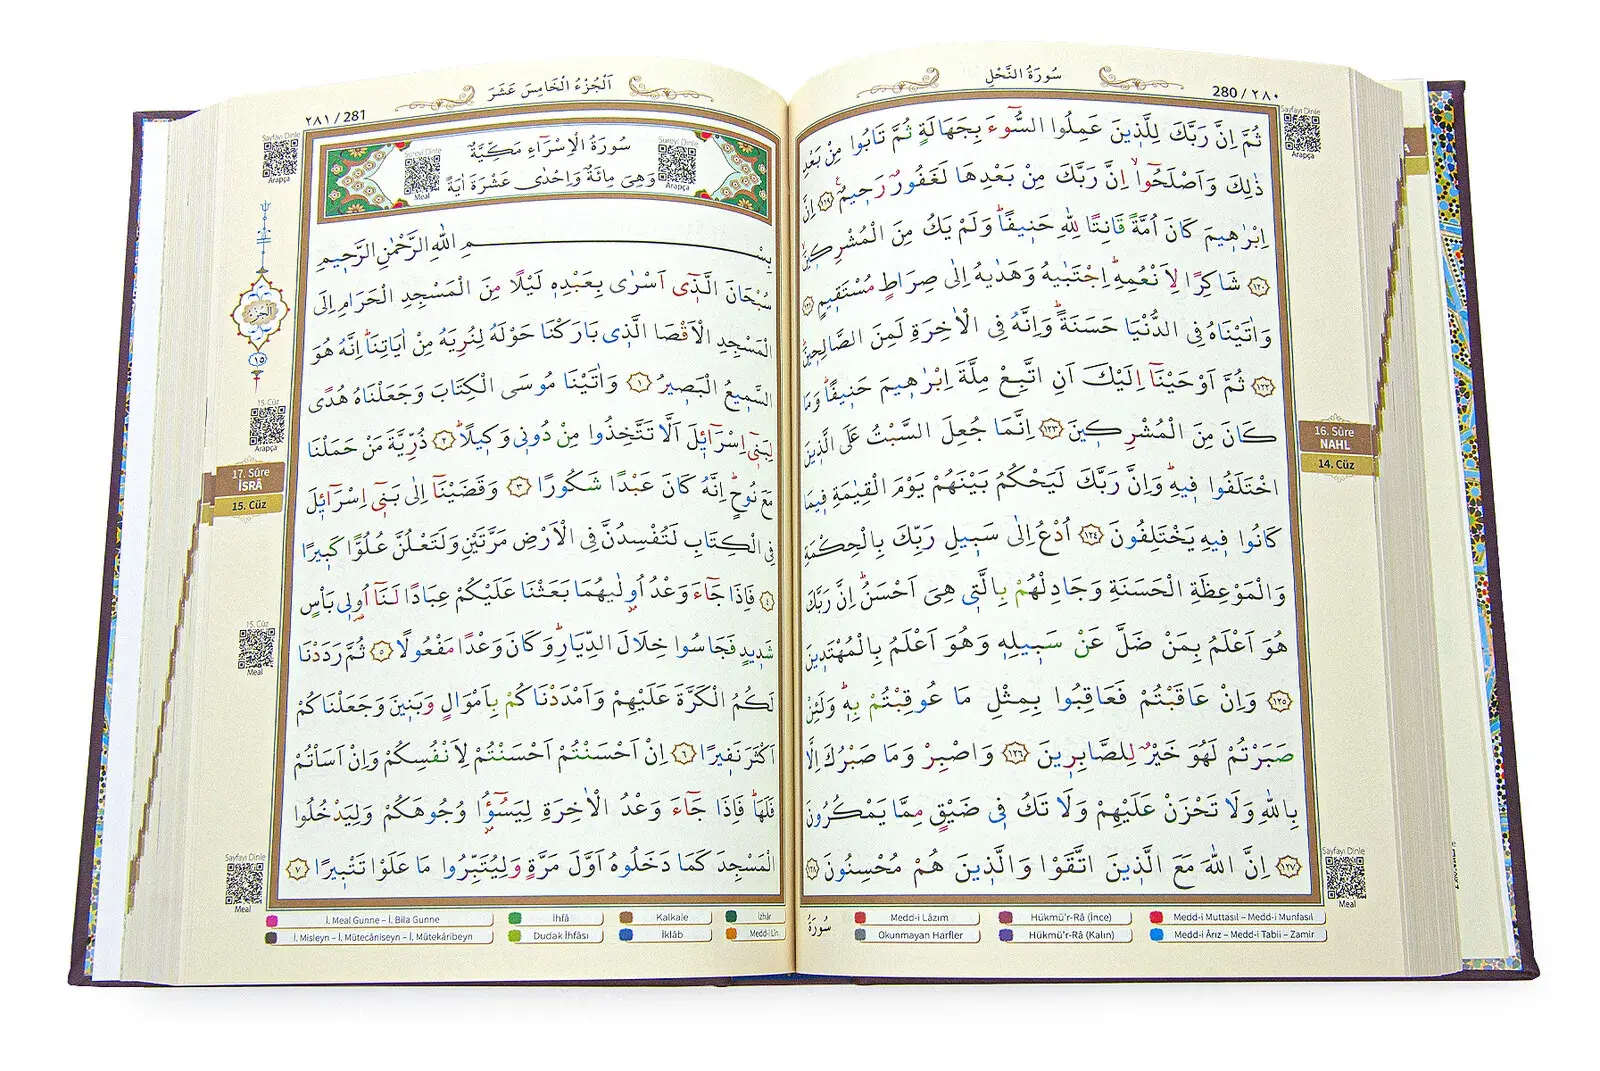 280 / ٢٨٠
سُورَةُ النَّحْلِ
Sayfayı Dinle
Arapça
ثُمَّ اِنَّ رَبَّكَ لِلَّذٖينَ عَمِلُوا السُّٓوءَ بِجَهَالَةٍ ثُمَّ تَابُوا مِنْ بَعْدِ
ذٰلِكَ وَاَصْلَحُٓوا اِنَّ رَبَّكَ مِنْ بَعْدِهَا لَغَفُورٌ رَحٖيمٌ ﴿١١٩﴾ اِنَّ
اِبْرٰهٖيمَ كَانَ اُمَّةً قَانِتًا لِلّٰهِ حَنٖيفًاؕ وَلَمْ يَكُ مِنَ الْمُشْرِكٖينَ
﴿١٢٠﴾ شَاكِرًا لِاَنْعُمِهٖؕ اِجْتَبٰيهُ وَهَدٰيهُ اِلٰى صِرَاطٍ مُسْتَقٖيمٍ ﴿١٢١﴾
وَاٰتَيْنَاهُ فِى الدُّنْيَا حَسَنَةًؕ وَاِنَّهُ فِى الْاٰخِرَةِ لَمِنَ الصَّالِحٖينَ
﴿١٢٢﴾ ثُمَّ اَوْحَيْنَٓا اِلَيْكَ اَنِ اتَّبِعْ مِلَّةَ اِبْرٰهٖيمَ حَنٖيفًاؕ وَمَا
كَانَ مِنَ الْمُشْرِكٖينَ ﴿١٢٣﴾ اِنَّمَا جُعِلَ السَّبْتُ عَلَى الَّذٖينَ
اخْتَلَفُوا فٖيهِؕ وَاِنَّ رَبَّكَ لَيَحْكُمُ بَيْنَهُمْ يَوْمَ الْقِيٰمَةِ فٖيمَا
كَانُوا فٖيهِ يَخْتَلِفُونَ ﴿١٢٤﴾ اُدْعُ اِلٰى سَبٖيلِ رَبِّكَ بِالْحِكْمَةِ
وَالْمَوْعِظَةِ الْحَسَنَةِ وَجَادِلْهُمْ بِالَّتٖى هِىَ اَحْسَنُؕ اِنَّ رَبَّكَ
هُوَ اَعْلَمُ بِمَنْ ضَلَّ عَنْ سَبٖيلِهٖ وَهُوَ اَعْلَمُ بِالْمُهْتَدٖينَ
﴿١٢٥﴾ وَاِنْ عَاقَبْتُمْ فَعَاقِبُوا بِمِثْلِ مَا عُوقِبْتُمْ بِهٖؕ وَلَئِنْ
صَبَرْتُمْ لَهُوَ خَيْرٌ لِلصَّابِرٖينَ ﴿١٢٦﴾ وَاصْبِرْ وَمَا صَبْرُكَ اِلَّا
بِاللّٰهِ وَلَا تَحْزَنْ عَلَيْهِمْ وَلَا تَكُ فٖى ضَيْقٍ مِمَّا يَمْكُرُونَ
﴿١٢٧﴾ اِنَّ اللّٰهَ مَعَ الَّذٖينَ اتَّقَوْا وَالَّذٖينَ هُمْ مُحْسِنُونَ ﴿١٢٨﴾
16. Sûre
NAHL
14. Cüz
Sayfayı Dinle
Meal
سُورَةُ
Medd-i Lâzım
Hükmü'r-Râ (İnce)
Medd-i Muttasıl – Medd-i Munfasıl
Okunmayan Harfler
Hükmü'r-Râ (Kalın)
Medd-i Ârız – Medd-i Tabii – Zamir
٢٨١ / 281
اَلْجُزْءُ الْخَامِسَ عَشَرَ
Sayfayı Dinle
Arapça
سُورَةُ الْاِسْرَٓاءِ مَكِّيَّةٌ
وَهِىَ مِائَةٌ وَاِحْدٰى عَشْرَةَ اٰيَةً
Sureyi Dinle
Arapça
Sureyi Dinle
Meal
بِسْمِ اللّٰهِ الرَّحْمٰنِ الرَّحٖيمِ
سُبْحَانَ الَّذٖٓى اَسْرٰى بِعَبْدِهٖ لَيْلًا مِنَ الْمَسْجِدِ الْحَرَامِ اِلَى
الْمَسْجِدِ الْاَقْصَا الَّذٖى بَارَكْنَا حَوْلَهُ لِنُرِيَهُ مِنْ اٰيَاتِنَاؕ اِنَّهُ هُوَ
السَّمٖيعُ الْبَصٖيرُ ﴿١﴾ وَاٰتَيْنَا مُوسَى الْكِتَابَ وَجَعَلْنَاهُ هُدًى
لِبَنٖٓى اِسْرَٓائٖلَ اَلَّا تَتَّخِذُوا مِنْ دُونٖى وَكٖيلًاؕ ﴿٢﴾ ذُرِّيَّةَ مَنْ حَمَلْنَا
مَعَ نُوحٍؕ اِنَّهُ كَانَ عَبْدًا شَكُورًا ﴿٣﴾ وَقَضَيْنَٓا اِلٰى بَنٖٓى اِسْرَٓائٖلَ
فِى الْكِتَابِ لَتُفْسِدُنَّ فِى الْاَرْضِ مَرَّتَيْنِ وَلَتَعْلُنَّ عُلُوًّا كَبٖيرًا
﴿٤﴾ فَاِذَا جَٓاءَ وَعْدُ اُو۫لٰيهُمَا بَعَثْنَا عَلَيْكُمْ عِبَادًا لَنَٓا اُو۬لٖى بَأْسٍ
شَدٖيدٍ فَجَاسُوا خِلَالَ الدِّيَارِؕ وَكَانَ وَعْدًا مَفْعُولًا ﴿٥﴾ ثُمَّ رَدَدْنَا
لَكُمُ الْكَرَّةَ عَلَيْهِمْ وَاَمْدَدْنَاكُمْ بِاَمْوَالٍ وَبَنٖينَ وَجَعَلْنَاكُمْ
اَكْثَرَ نَفٖيرًا ﴿٦﴾ اِنْ اَحْسَنْتُمْ اَحْسَنْتُمْ لِاَنْفُسِكُمْ وَاِنْ اَسَأْتُمْ
فَلَهَاؕ فَاِذَا جَٓاءَ وَعْدُ الْاٰخِرَةِ لِيَسُٓؤُ۫ا وُجُوهَكُمْ وَلِيَدْخُلُوا
الْمَسْجِدَ كَمَا دَخَلُوهُ اَوَّلَ مَرَّةٍ وَلِيُتَبِّرُوا مَا عَلَوْا تَتْبٖيرًا ﴿٧﴾
اَلْجُزْءُ
١٥
15. Cüz
Arapça
17. Sûre
İSRÂ
15. Cüz
15. Cüz
Meal
Sayfayı Dinle
Meal
İ. Meal Gunne – İ. Bila Gunne
İhfâ
Kalkale
İzhâr
İ. Misleyn – İ. Mütecâniseyn – İ. Mütekâribeyn
Dudak İhfâsı
İklâb
Medd-i Lîn